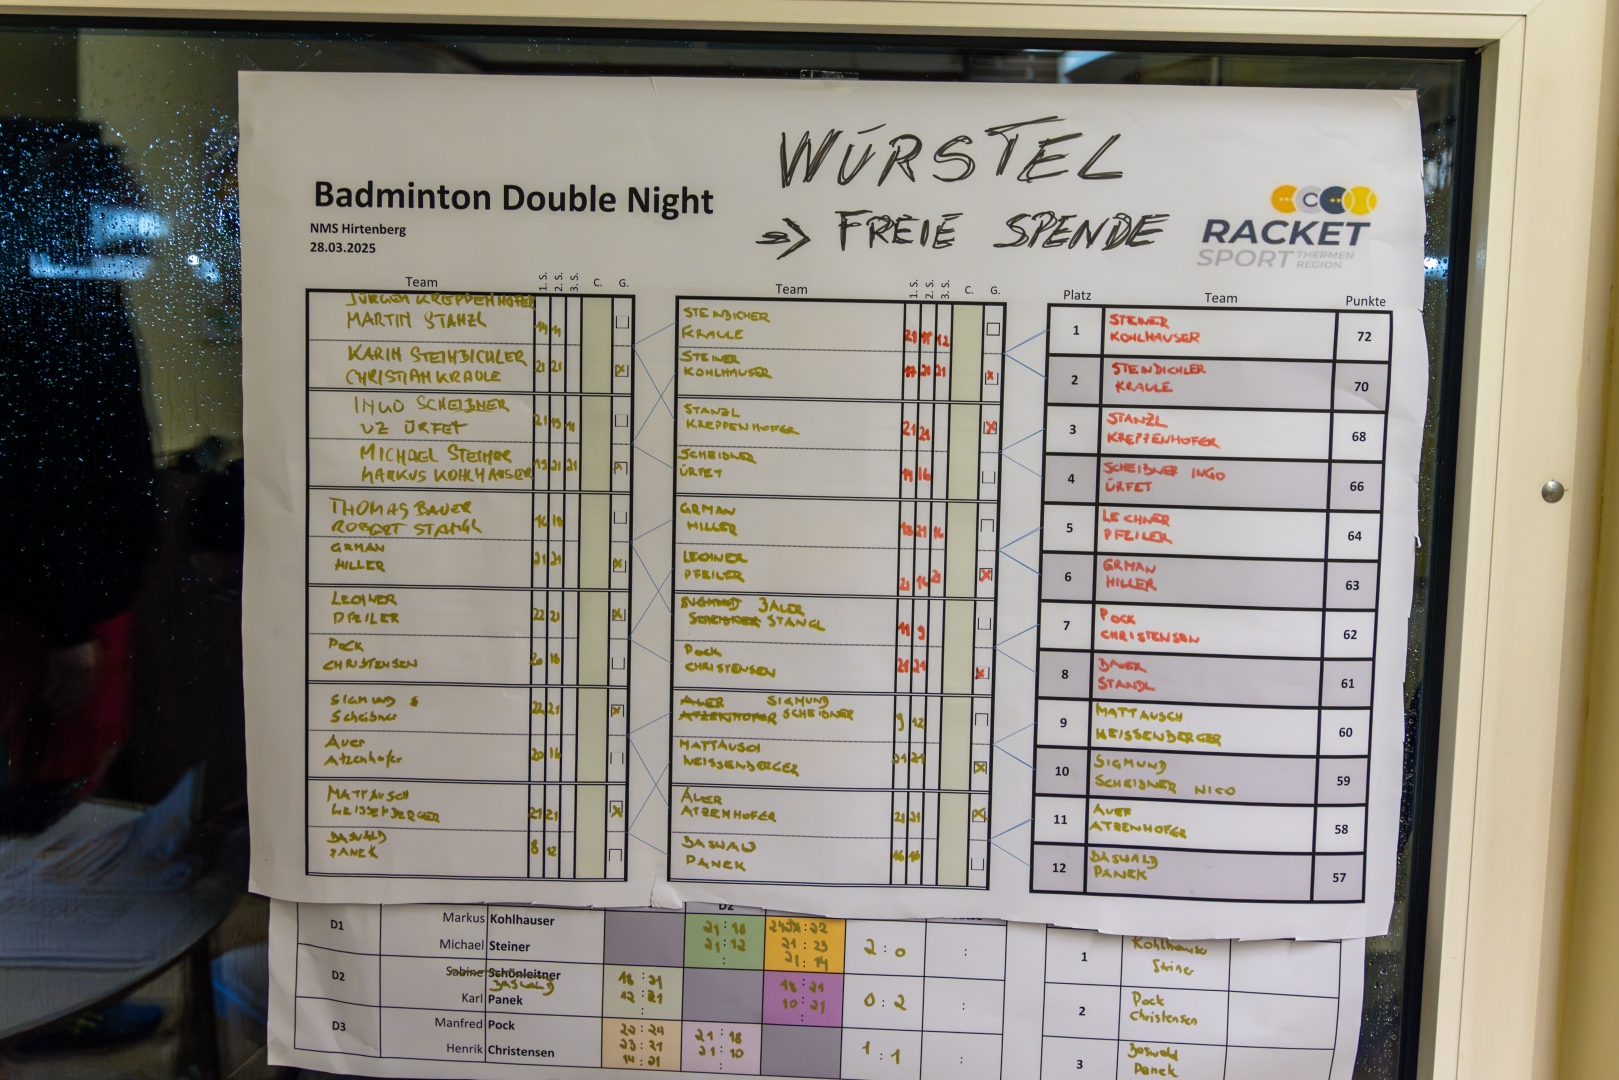 WÜRSTEL
=> FREIE SPENDE
Badminton Double Night
NMS Hirtenberg
28.03.2025
RACKET
SPORT THERMEN REGION
Team 1. S. 2. S. 3. S. C. G.
JÜRGEN KREPPENHOFER
MARTIN STANZL 14 11
KARIN STEINBICHLER
CHRISTIAN KRALLE 21 21
INGO SCHEIBNER
UZ ÜRFET 21 19 11
MICHAEL STEINER
MARKUS KOHLHAUSER 19 21 21
THOMAS BAUER
ROBERT STANGL 16 18
GRMAN
HILLER 21 21
LECHNER
PFEILER 22 21
POCK
CHRISTENSEN 20 18
SIGMUND &
Scheibner 22 21
Auer
Atzenhofer 20 16
MATTAUSCH
WEISSENBERGER 21 21
BASWALD
PANEK 8 12
Team 1. S. 2. S. 3. S. C. G.
STEINBICHER
KRALLE 21 15 12
STEINER
KOHLHAUSER 17 21 21
STANZL
KREPPENHOFER 21 21
SCHEIBNER
ÜRFET 14 16
GRMAN
HILLER 18 21 16
LECHNER
PFEILER 21 16 21
SIGMUND BAUER
SCHEIBNER STANGL 11 9
POCK
CHRISTENSEN 21 21
AUER SIGMUND
ATZENHOFER SCHEIBNER 9 12
MATTAUSCH
WEISSENBERGER 21 21
AUER
ATZENHOFER 21 21
BASWALD
PANEK 16 16
Platz Team Punkte
1 STEINER
KOHLHAUSER 72
2 STEINDICHLER
KRALLE 70
3 STANZL
KREPPENHOFER 68
4 SCHEIBNER INGO
ÜRFET 66
5 LECHNER
PFEILER 64
6 GRMAN
HILLER 63
7 POCK
CHRISTENSEN 62
8 BAUER
STANGL 61
9 MATTAUSCH
WEISSENBERGER 60
10 SIGMUND
SCHEIBNER NICO 59
11 AUER
ATZENHOFER 58
12 BASWALD
PANEK 57
D2
D1 Markus Kohlhauser 21:18 22
Michael Steiner 21:12 21:23 2:0 :
: 21:14
D2 Sabine Schönleitner 18:21 18:21
BASWALD
Karl Panek 12:21 10:21 0:2 :
D3 Manfred Pock 22:24 21:18
Henrik Christensen 23:21 21:10 1:1 :
14:21 :
1 Kohlhauser
Steiner
2 Pock
Christensen
3 Baswald
Panek